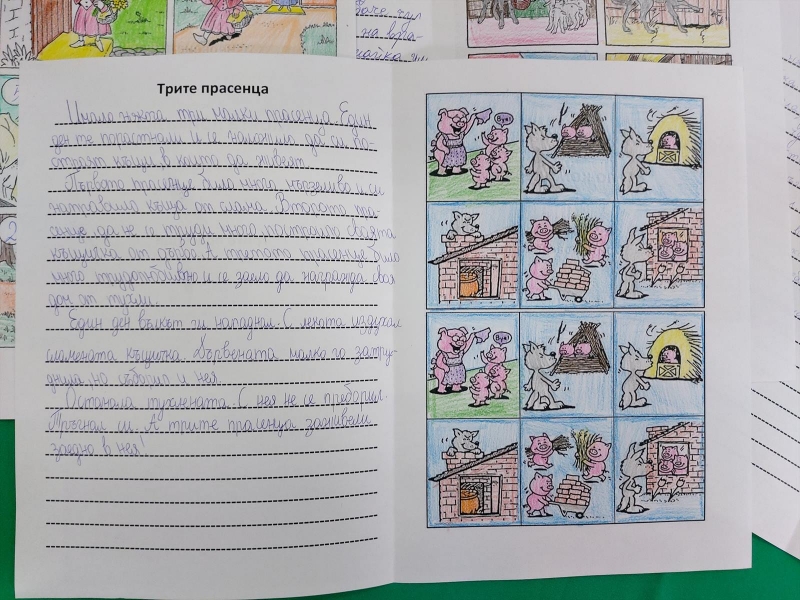 Трите прасенца
Имало някога три малки прасенца. Един
ден те пораснали и се наложило да си по-
строят къщи, в които да живеят.
Първото прасенце било много мързеливо и си
направило къща от слама. Второто пра-
сенце, да не се труди много построило своята
къщичка от дърво. А третото прасенце било
много трудолюбиво и се заело да награжда своя
дом от тухли.
Един ден вълкът ги нападнал. С лекота издухал
сламената къщичка. Дървената малко го затру-
днила но съборил и нея.
Останала тухлената. С нея не се преборил.
Тръгнал си. А трите прасенца заживели
заедно в нея!
Вуй!
Вуй!